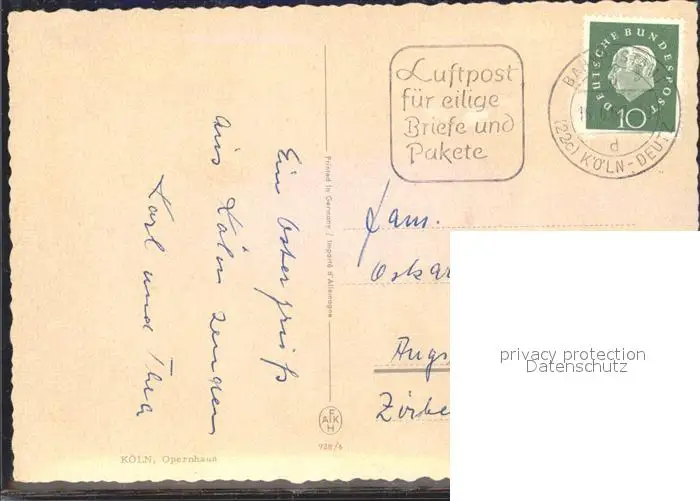 Luftpost
für eilige
Briefe und
Pakete
DEUTSCHE BUNDESPOST
10
d
(22c) KÖLN-DEUTZ
Ein Ostergruß
aus Köln senden
Karl und Thea
Printed in Germany / Imprimé d'Allemagne
Fam.
Oskar
Augs
privacy protection
Datenschutz
AFKH
928/6
KÖLN, Opernhaus